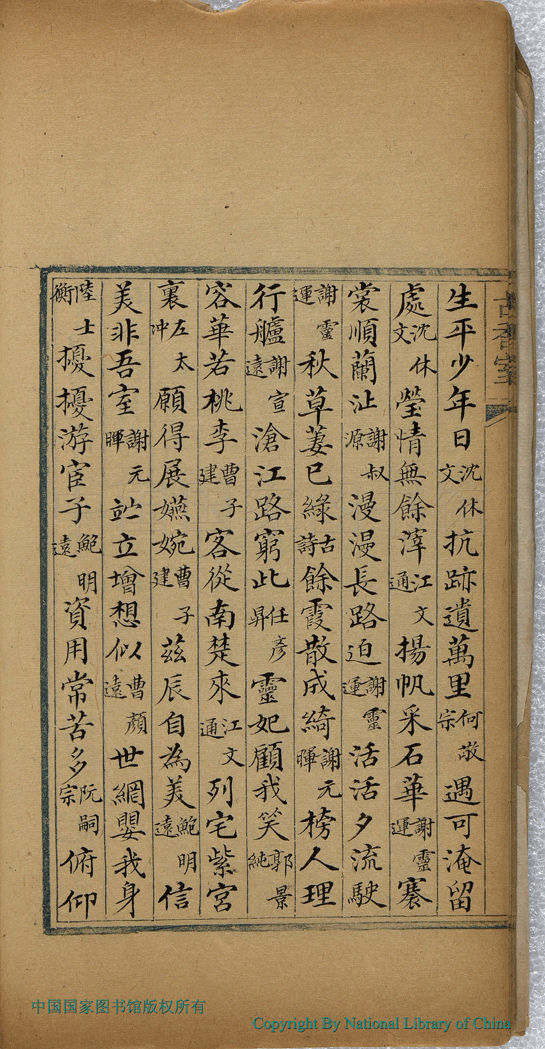 生平少年日沈休文抗跡遺萬里何敬宗遇可淹留
處沈休文瑩情無餘滓江文通揚帆采石華謝靈運褰
裳順蘭沚謝叔源漫漫長路迫謝靈運活活夕流駛
謝靈運秋草萋已綠古詩餘霞散成綺謝元暉榜人理
行艫謝宣遠滄江路窮此任彥昇靈妃顧我笑郭景純
容華若桃李曹子建客從南楚來江文通列宅紫宮
裏左太冲願得展嬿婉曹子建茲辰自為美鮑明遠信
美非吾室謝元暉竚立增想似曹顏遠世網嬰我身
陸士衡擾擾游宦子鮑明遠資用常苦多阮嗣宗俯仰
中国国家图书馆版权所有
Copyright By National Library of China